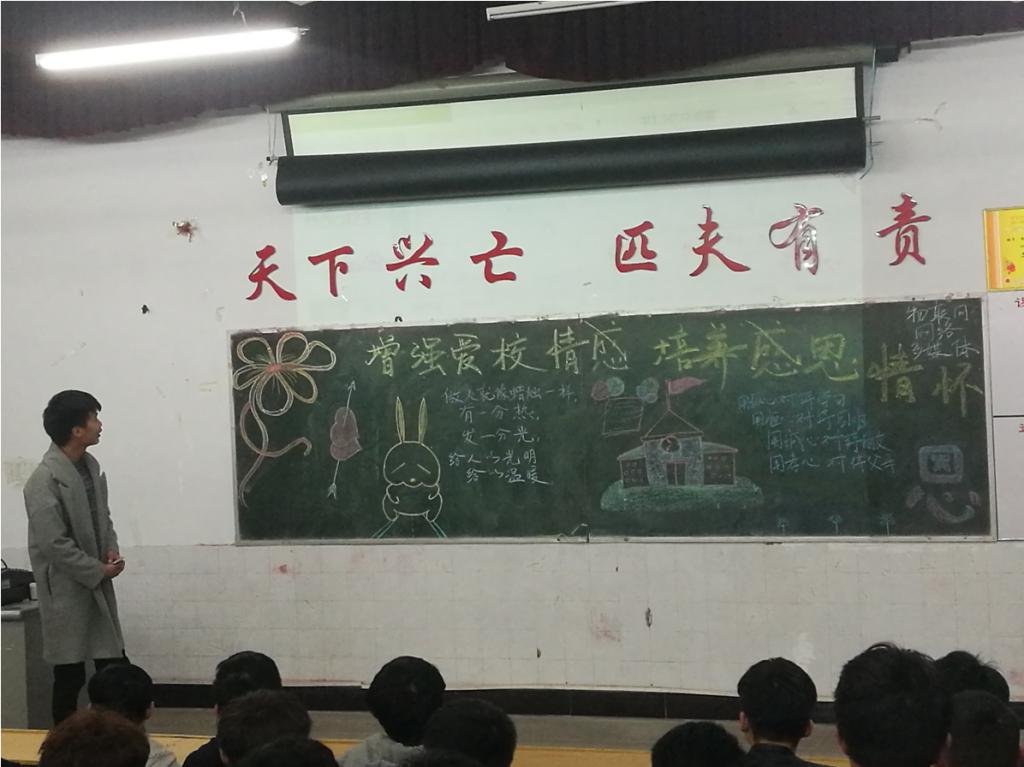 天下兴亡 匹夫有责
增强爱校情感 培养感恩情怀
物联网
网络
多媒体
做人就像蜡烛一样,
有一分热,
发一分光,
给人以光明
给以温暖
用心对待学习
用爱心对待同学
用诚心对待朋友
用孝心对待父母